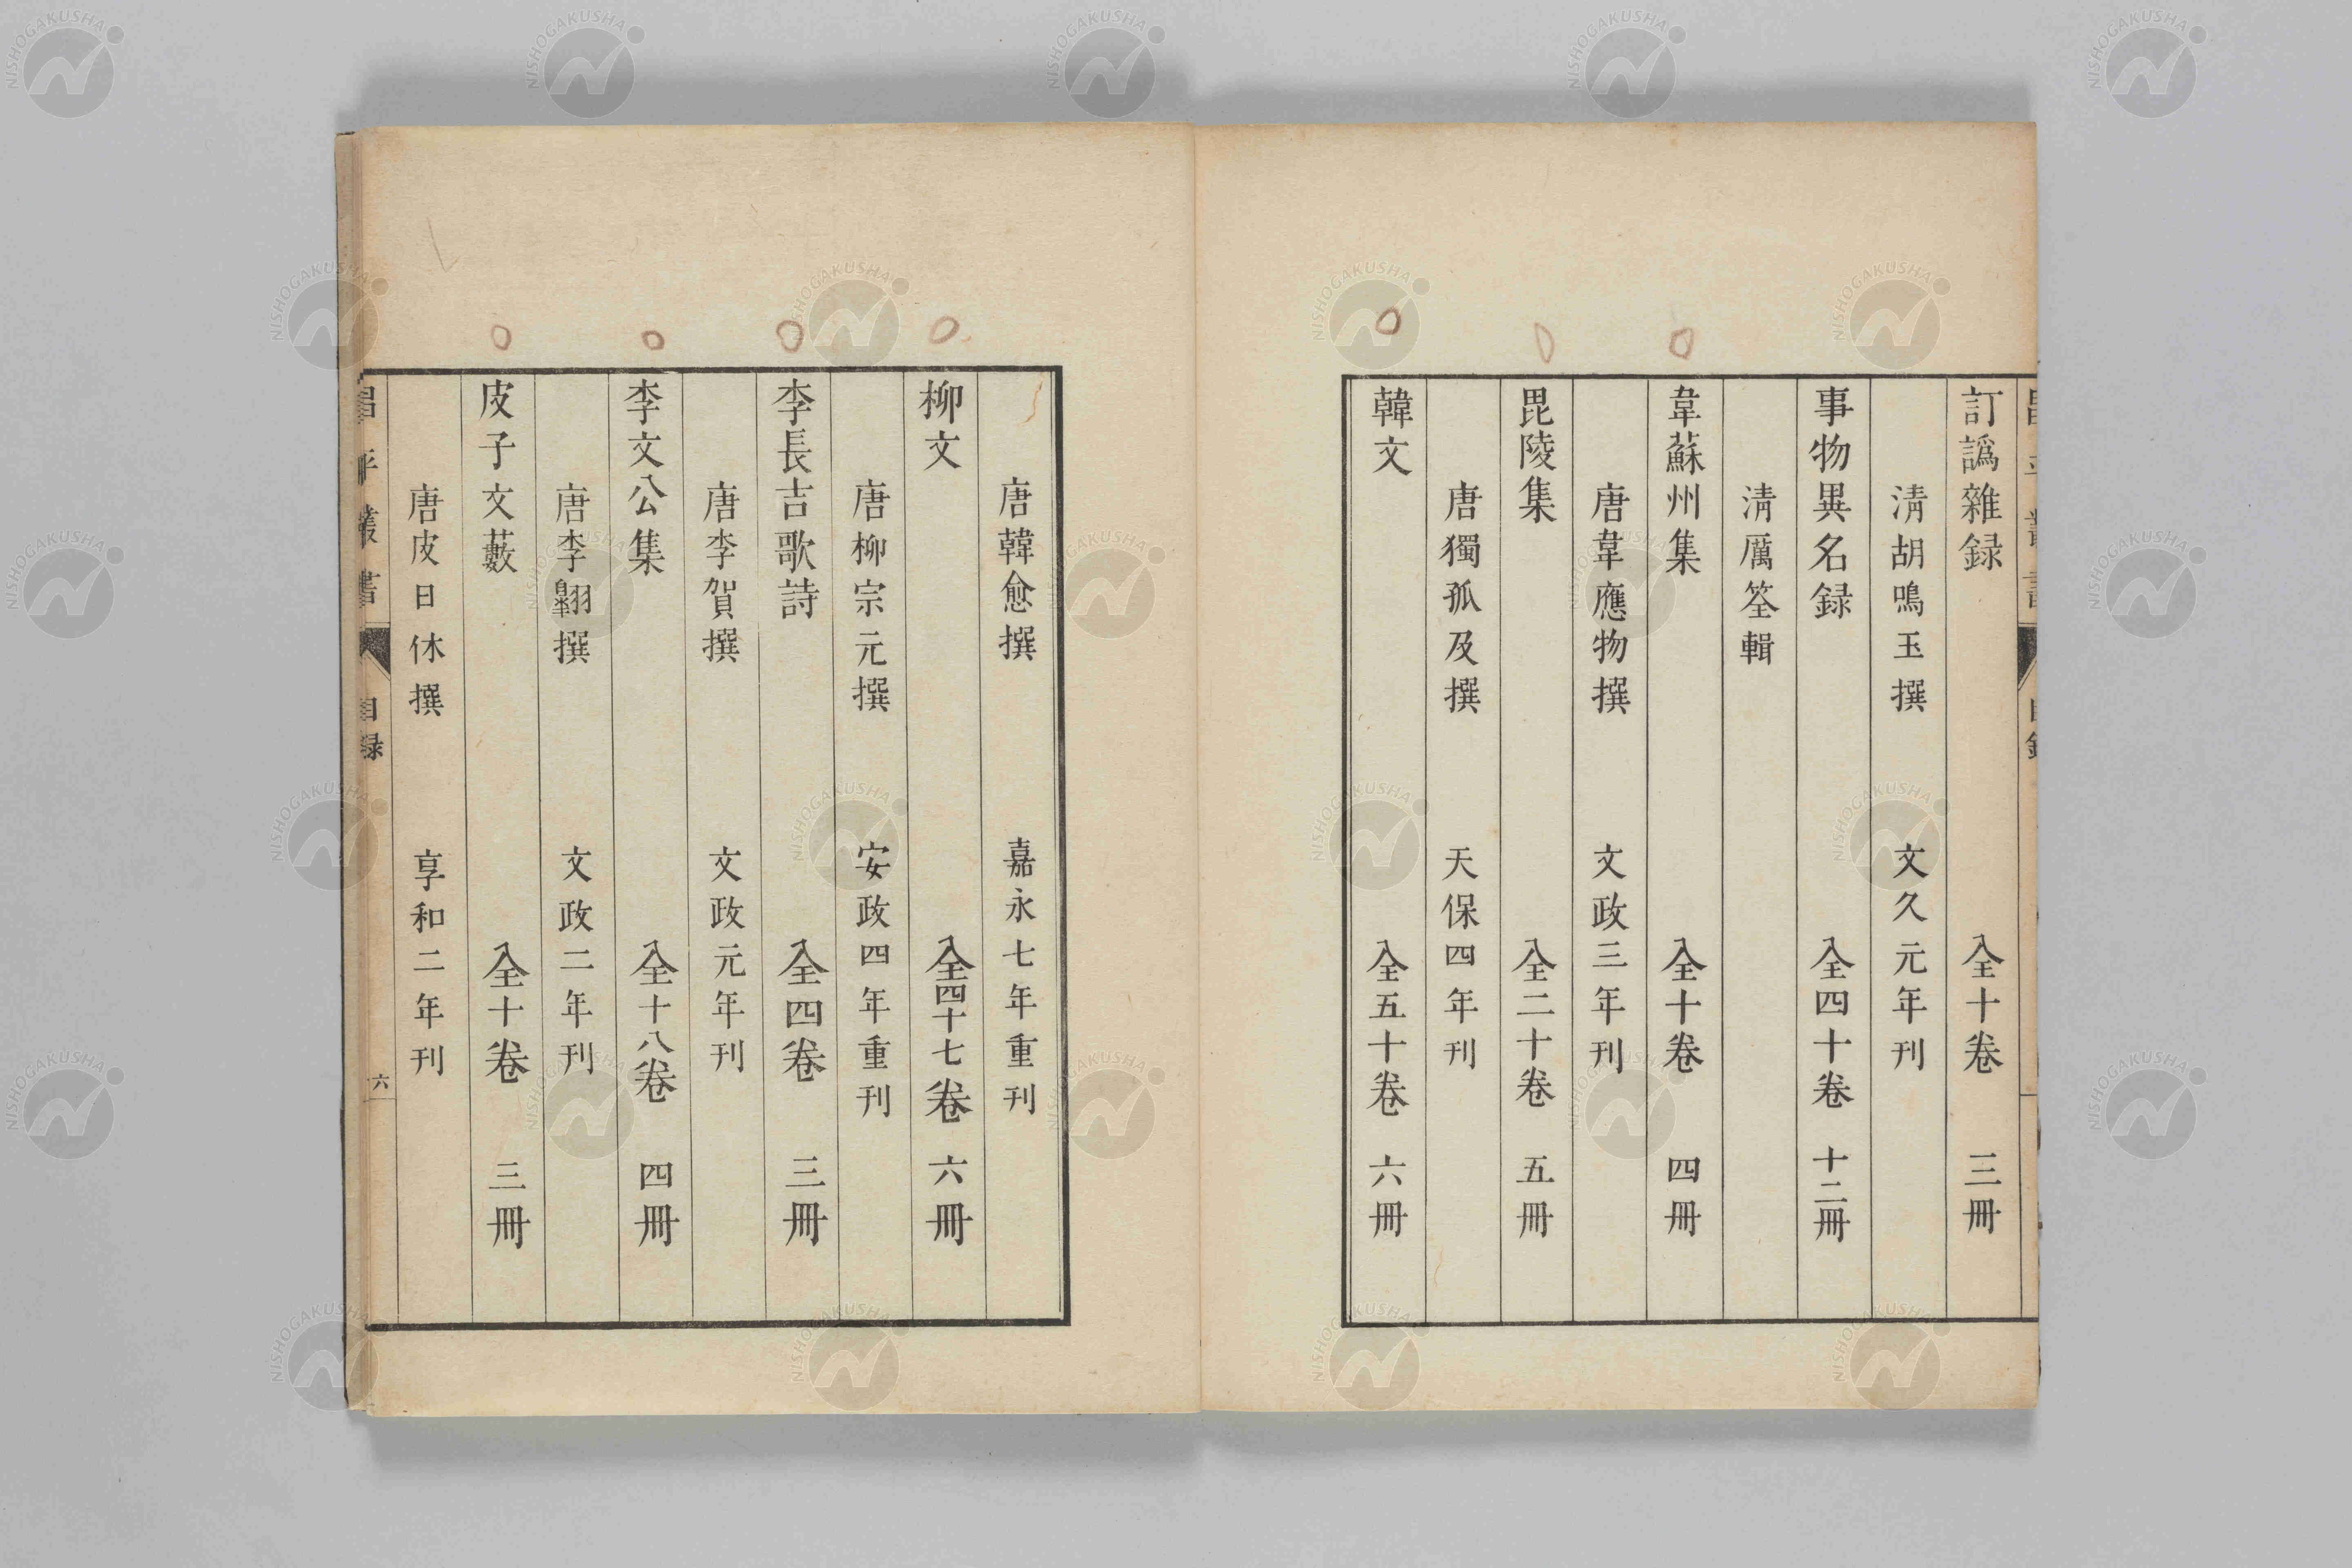 訂譌雜録 全十卷 三冊
淸胡鳴玉撰 文久元年刊
事物異名録 全四十卷 十二冊
淸厲筌輯
韋蘇州集 全十卷 四冊
唐韋應物撰 文政三年刊
毘陵集 全二十卷 五冊
唐獨孤及撰 天保四年刊
韓文 全五十卷 六冊
唐韓愈撰 嘉永七年重刊
柳文 全四十七卷 六冊
唐柳宗元撰 安政四年重刊
李長吉歌詩 全四卷 三冊
唐李賀撰 文政元年刊
李文公集 全十八卷 四冊
唐李翺撰 文政二年刊
皮子文藪 全十卷 三冊
唐皮日休撰 享和二年刊
昌平叢書 目録 六
NISHOGAKUSHA